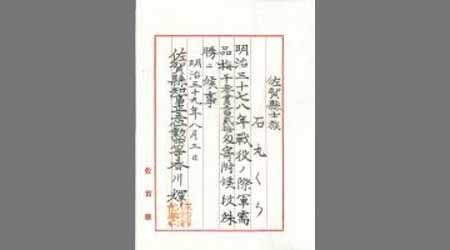 佐賀縣士族
石丸くら
明治三十七八年戰役ノ際軍需
品梅干 寄附候段殊
勝ニ候事
明治三十九年八月三日
佐賀縣知事 香川輝
佐賀縣